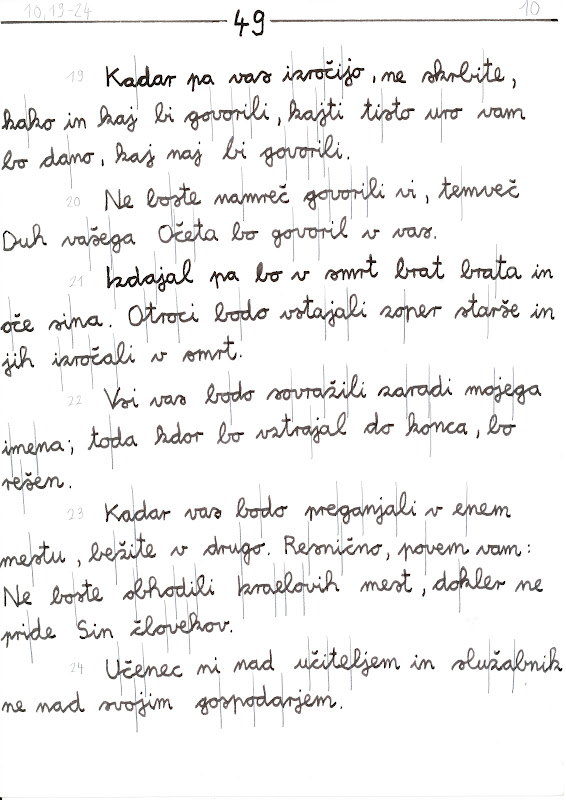 10,19-24 49 10
19 Kadar pa vas izročijo, ne skrbite,
kako in kaj bi govorili, kajti tisto uro vam
bo dano, kaj naj bi govorili.
20 Ne boste namreč govorili vi, temveč
Duh vašega Očeta bo govoril v vas.
21 Izdajal pa bo v smrt brat brata in
oče sina. Otroci bodo vstajali zoper starše in
jih izročali v smrt.
22 Vsi vas bodo sovražili zaradi mojega
imena; toda kdor bo vztrajal do konca, bo
rešen.
23 Kadar vas bodo preganjali v enem
mestu, bežite v drugo. Resnično, povem vam:
Ne boste obhodili Izraelovih mest, dokler ne
pride Sin človekov.
24 Učenec ni nad učiteljem in služabnik
ne nad svojim gospodarjem.